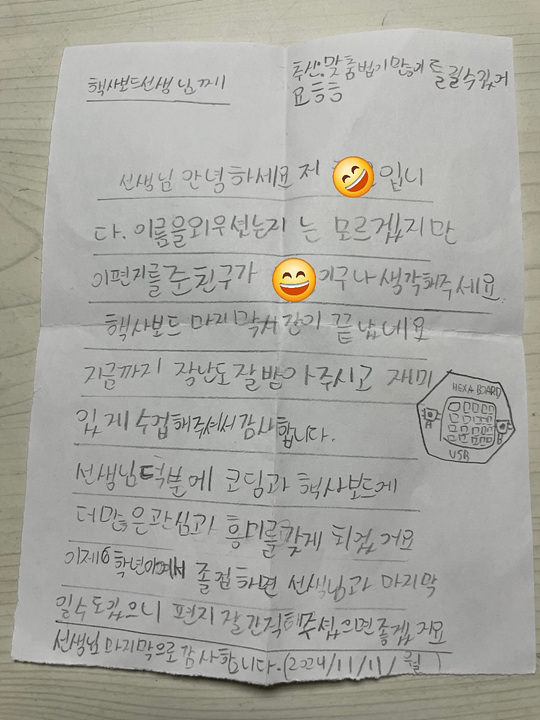 핵사보드선생님께
추신:맞춤법이많이틀릴수있거
요등등
선생님 안녕하세요 저 입니
다. 이름을외우셨는지 는 모르겠지만
이편지를준친구가 이구나 생각해주세요.
핵사보드 마지막시간이 끝났네요
지금까지 장난도잘받아주시고 재미
있게수업해주셔서감사합니다.
HEXA BOARD
A
B
USB
선생님덕분에 코딩과 핵사보드에
더많은관심과 흥미를갖게 되겠거요
이제6학년이여서 졸업하면 선생님과 마지막
일수도있으니 편지 잘간직해주셨으면좋겠거요
선생님 마지막으로감사합니다.(2024/11/11/월)